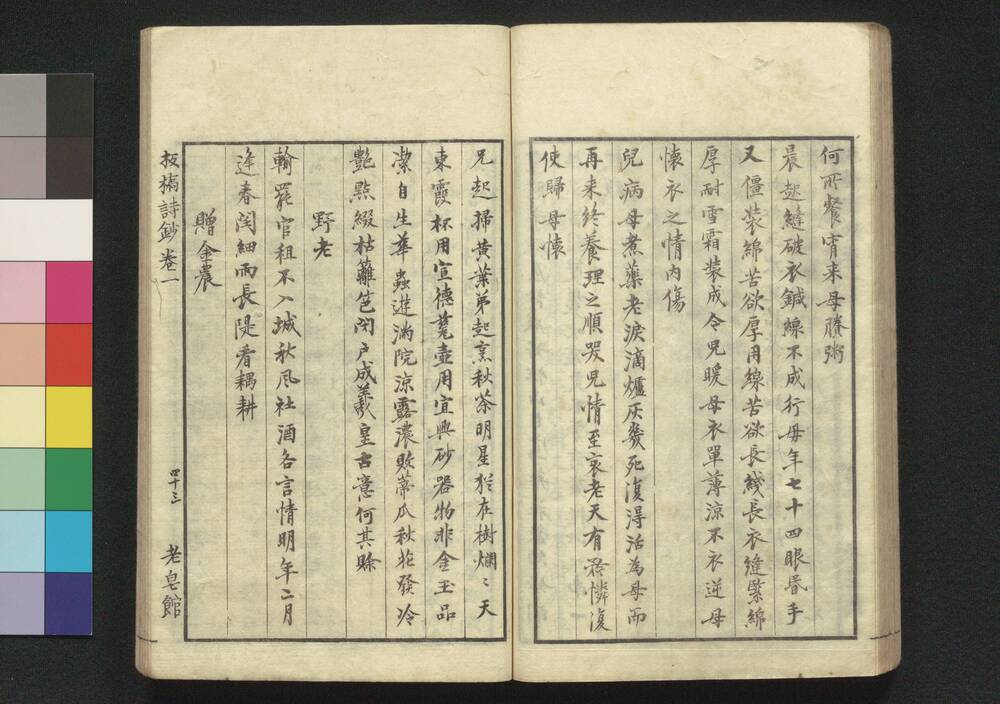 何所餐宵来母賸粥
晨起縫破衣鍼線不成行母年七十四眼昏手
又僵装綿苦欲厚用線苦欲長綫長衣縫緊綿
厚耐雪霜装成令兒暖母衣單薄涼不衣逆母
懷衣之情内傷
兒病母煮藥老淚滴爐灰幾死復得活為母而
再来終養理之順哭兒情至哀老天有矜憐復
使歸母懷
兄起掃黄葉弟起烹秋茶明星猶在樹爛〻天
東霞杯用宣德甆壺用宜興砂器物非金玉品
潔自生華蟲遊満院涼露濃敗蔕瓜秋花發冷
艷點綴枯蘺笆閉戸成羲皇古意何其賒
野老
輸罷官租不入城秋風社酒各言情明年二月
逢春閏細雨長隄看耦耕
贈金農
板橋詩鈔卷一
四十三
老皂館